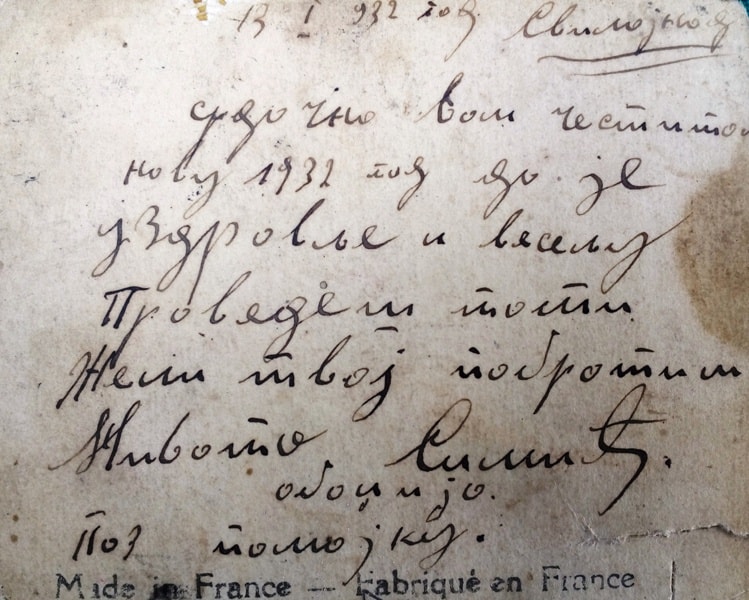 13 I 932 год. Свилојнод
срдочно вам честитам
нову 1932 год до је
уздровље и веселу
Проведеш тоти
Жели твој побротим
Живото Симић.
обоцијо.
Поз помојку.
Made in France — Fabriqué en France